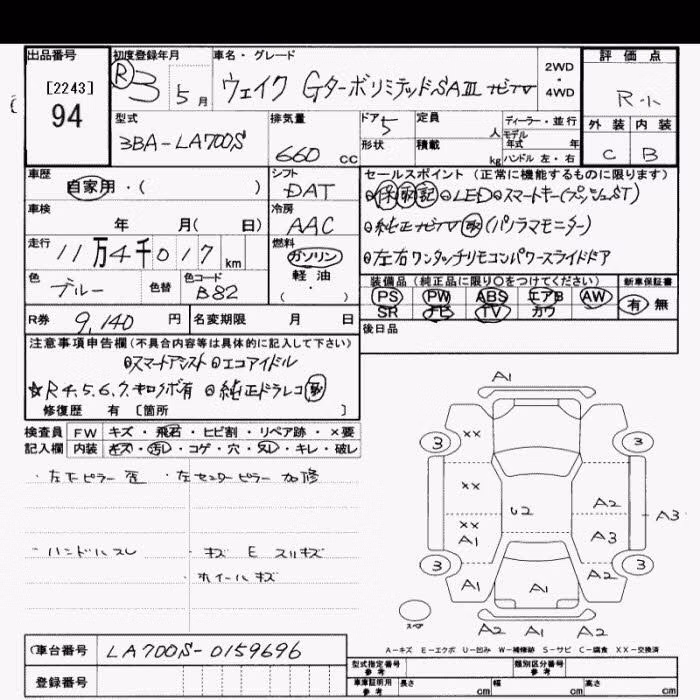 出品番号
[2243]
94
初度登録年月
R 3 5 月
車名・グレード
ウェイク GターボリミテッドSAⅢ ナビTV
2WD
・
4WD
評価点
R-小
外装 内装
C B
型式
3BA-LA700S
排気量
660 CC
ドア 5
形状
定員 人
積載 kg
ディーラー・並行
モデル
年式 年
ハンドル 左・右
車歴
自家用・( )
シフト
DAT
セールスポイント (正常に機能するものに限ります)
⊙保取記⊙LED⊙スマートキー(プッシュST)
⊙純正ナビTV取(パノラマモニター)
⊙左右ワンタッチリモコンパワースライドドア
車検
年 月( 日)
冷房
AAC
走行
11万4千017 km
燃料
ガソリン
軽油
( ・ )
色
ブルー
色替
色コード
B82
装備品 (純正品に限り○をつけてください)
PS PW ABS エアB AW
SR ナビ TV カワ
新車保証書
有 無
R券 9,140 円
名変期限 月 日
後日品
注意事項申告欄(不具合内容等は具体的に記入して下さい)
⊙スマートアシスト ⊙エコアイドル
☆R4.5.6.7.キロクボ有 ⊙純正ドラレコ取
修復歴 有 [箇所 ]
検査員 FW キズ・飛石・ヒビ割・リペア跡・×要
記入欄 内装 キズ・汚レ・コゲ・穴・ヌレ・キレ・破レ
・左下ピラー 歪 ・左センターピラー 加修
・ハンドルスレ ・キズ E スリキズ
ホイールキズ
A1
3 XX 3
XX U2 A2 A3
XX A1 A3
3 A1 A1 A2 3
スペア
A2 A1 A2
A-キズ E-エクボ U-凹み W-補修跡 S-サビ C-腐食 XX-交換済
車台番号 LA700S-0159696
登録番号
型式指定番号 参考
類別区分番号 参考
車庫証明用 参考 長さ cm 幅 cm 高さ cm